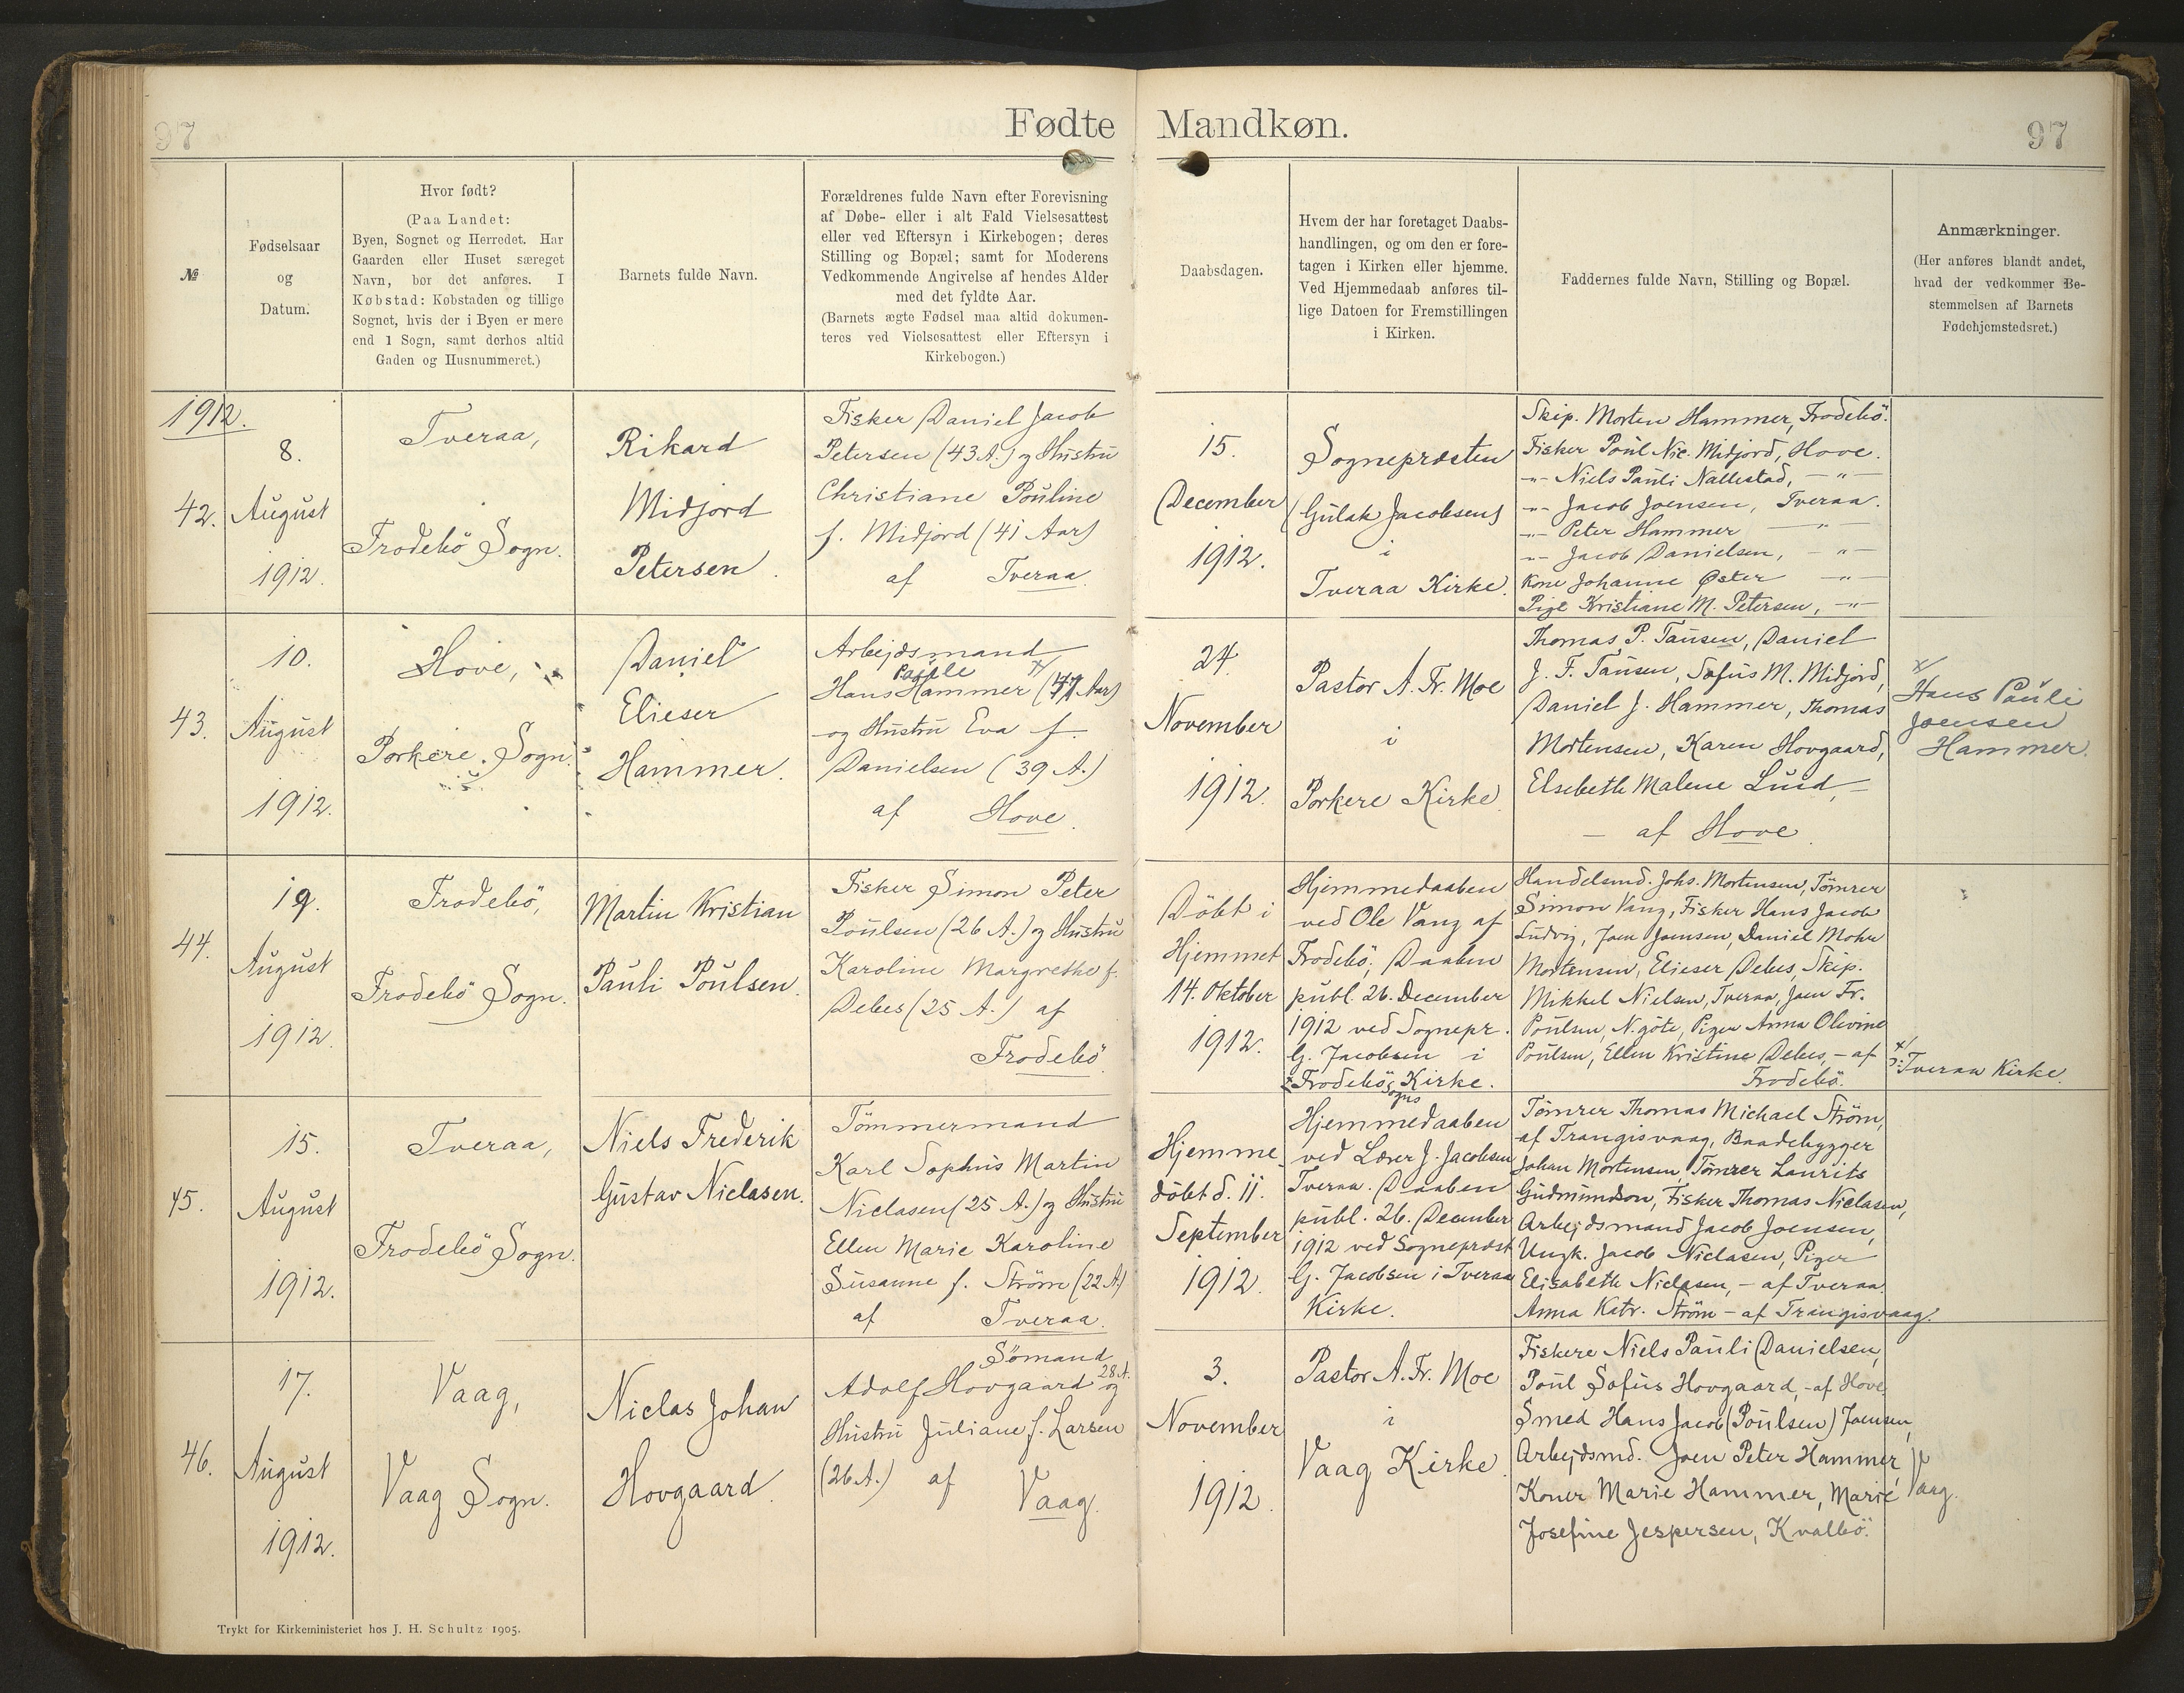 97
Fødte Mandkøn.
97
№
Fødselsaar
og
Datum.
Hvor født?
(Paa Landet:
Byen, Sognet og Herredet. Har
Gaarden eller Huset særeget
Navn, bør det anføres. I
Købstad: Købstaden og tillige
Sognet, hvis der i Byen er mere
end 1 Sogn, samt derhos altid
Gaden og Husnummeret.)
Barnets fulde Navn.
Forældrenes fulde Navn efter Forevisning
af Døbe- eller i alt Fald Vielsesattest
eller ved Eftersyn i Kirkebogen; deres
Stilling og Bopæl; samt for Moderens
Vedkommende Angivelse af hendes Alder
med det fyldte Aar.
(Barnets ægte Fødsel maa altid dokumen-
teres ved Vielsesattest eller Eftersyn i
Kirkebogen.)
Daabsdagen.
Hvem der har foretaget Daabs-
handlingen, og om den er fore-
tagen i Kirken eller hjemme.
Ved Hjemmedaab anføres til-
lige Datoen for Fremstillingen
i Kirken.
Faddernes fulde Navn, Stilling og Bopæl.
Anmærkninger.
(Her anføres blandt andet,
hvad der vedkommer Be-
stemmelsen af Barnets
Fødehjemstedsret.)
1912.
42.
8.
August
1912.
Tveraa,
Frodebö Sogn.
Rikard
Midjord
Petersen.
Fisker Daniel Jacob
Petersen (43 A.) og Hustru
Christiane Pouline
f. Midjord (41 Aar)
af Tveraa.
15.
December
1912.
Sognepræsten
(Gulak Jacobsen)
i
Tveraa Kirke.
Skip. Morten Hammer, Frodebö.
Fisker Poul Nic. Midjord, Hove.
-"- Niels Pauli Nallestad, -"-
-"- Jacob Joensen, Tveraa.
-"- Peter Hammer -"-
-"- Jacob Danielsen, -"-
Kone Johanne Øster -"-
Pige Kristiane M. Petersen, -"-
43.
10.
August
1912.
Hove,
Porkere Sogn.
Daniel
Elieser
Hammer.
Arbejdsmand
Hans Hammer x/ (47 Aar)
og Hustru Eva f.
Danielsen (39 A.)
af Hove.
24.
November
1912.
Pastor A. Fr. Moe
i
Porkere Kirke.
Thomas P. Tausen, Daniel
J. F. Tausen, Sofus M. Midjord,
Daniel J. Hammer, Thomas
Mortensen, Karen Hovgaard,
Elsebeth Malene Lund,
- af Hove.
x/
Hans Pauli
Joensen
Hammer.
44.
19.
August
1912.
Frodebö,
Frodebö Sogn.
Martin Kristian
Pauli Poulsen.
Fisker Simon Peter
Poulsen (26 A.) og Hustru
Karoline Margrethe f.
Debes (25 A.) af
Frodebö.
Döbt i
Hjemmet
14. Oktober
1912.
Hjemmedaaben
ved Ole Vang af
Frodebö; Daaben
publ. 26. December
1912 ved Sognepr.
G. Jacobsen i
x Frodebö Sogns Kirke.
Handelsmd. Johs. Mortensen, Tömrer
Simon Vang, Fisker Hans Jacob
Ludvig, Joen Joensen, Daniel Mohr
Mortensen, Elieser Debes, Skip.
Mikkel Nielsen, Tveraa, Joen Fr.
Poulsen, N. göte, Piger Anna Olevine
Poulsen, Ellen Kristine Debes, - af
Frodebö.
x/
ɔ: Tveraa Kirke.
45.
15.
August
1912.
Tveraa,
Frodebö Sogn.
Niels Frederik
Gustav Niclasen.
Tömmermand
Karl Sophus Martin
Niclasen (25 A.) og Hustru
Ellen Marie Karoline
Susanne f. Ström (22 A.)
af Tveraa.
Hjemme-
döbt d. 11.
September
1912.
Hjemmedaaben
ved Lærer J. Jacobsen
Tveraa. Daaben
publ. 26. December
1912 ved Sognepræst
G. Jacobsen i Tveraa
Kirke.
Tömrer Thomas Michael Ström,
af Trangisvaag, Baadebygger
Johan Mortensen, Tömrer Laurits
Gudmundson, Fisker Thomas Niclasen,
Arbejdsmand Jacob Joensen,
Ungk. Jacob Niclasen, Piger
Elisabeth Niclasen, - af Tveraa.
Anna Katr. Ström - af Trangisvaag.
46.
17.
August
1912.
Vaag,
Vaag Sogn.
Niclas Johan
Hovgaard.
Sömand
Adolf Hovgaard 28 A. og
Hustru Juliane f. Larsen
(26 A.) af Vaag.
3.
November
1912.
Pastor A. Fr. Moe
i
Vaag Kirke.
Fiskere Niels Pauli Danielsen,
Poul Sofus Hovgaard, - af Hove
Smed Hans Jacob (Poulsen) Joensen,
Arbejdsmd. Joen Peter Hammer,
Koner Marie Hammer, Marie Vaag.
Josefine Jespersen, Kvalbö.
Trykt for Kirkeministeriet hos J. H. Schultz 1905.